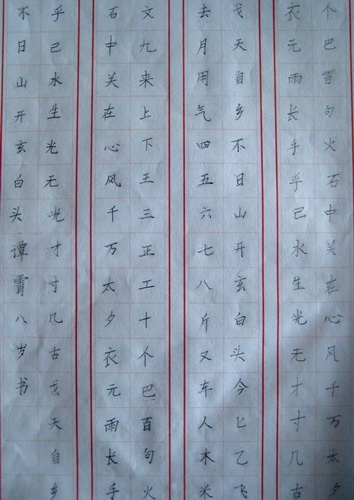 个巴百句火石中关在心风千万太夕
衣元雨长手乎己水生光无才寸几古
戈天自乡不日山开玄白头今匕乙飞
去月用气四五六七八斤又车人木米
文九来上下王三正工十个巴百句火
石中关在心风千万太夕衣元雨长手
乎己水生光无光才寸几古戈天自乡
不日山开玄白头谭霄八岁书